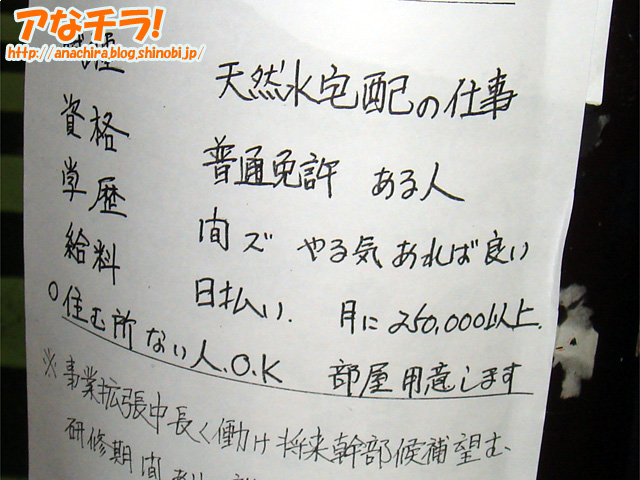 アなチラ!
http://anachira.blog.shinobi.jp/
職種 天然水宅配の仕事
資格 普通免許 ある人
学歴 間ズ やる気あれば良い
給料 日払い. 月に250,000以上.
○住む所ない人.O.K 部屋用意します
※事業拡張中長く働け将来幹部候補望む、
研修期間あり